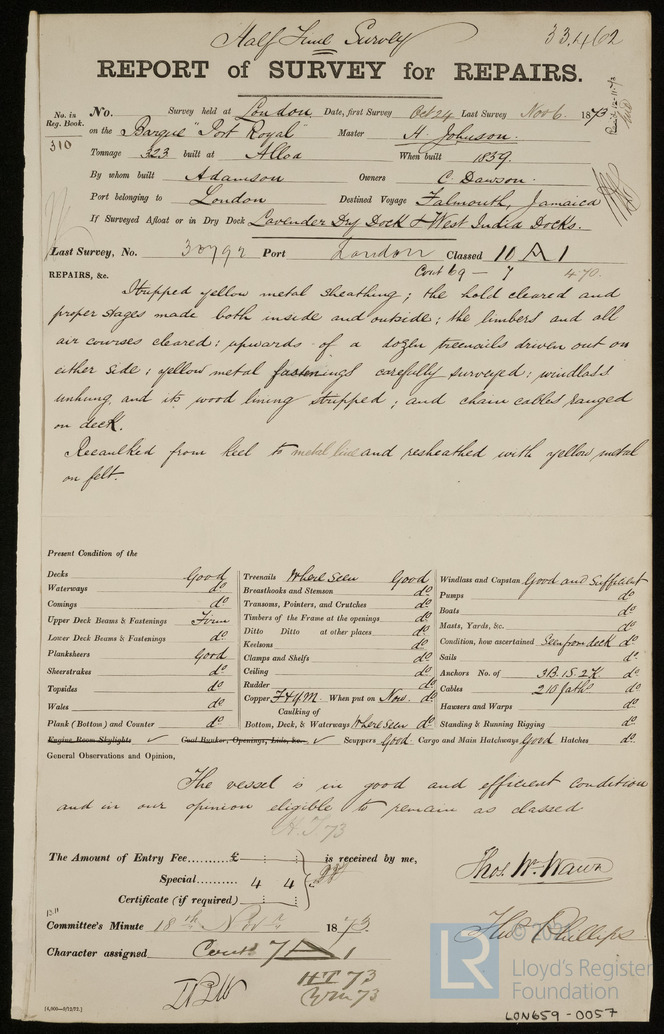 Half Time Survey 33,462
REPORT of SURVEY for REPAIRS.
No. in Reg. Book. 310
No. Survey held at London Date, first Survey Oct 24 Last Survey Nov 6. 1873
on the Barque "Port Royal" Master H. Johnson.
Tonnage 323 built at Alloa When built 1839.
By whom built Adamson Owners C. Dawson.
Port belonging to London Destined Voyage Falmouth, Jamaica
If Surveyed Afloat or in Dry Dock Lavender Dry Dock & West India Docks.
Last Survey, No. 30792 Port London Classed 10 A 1
Cont 69 - 7 470
REPAIRS, &c.
Stripped yellow metal sheathing; the hold cleared and
proper stages made both inside and outside; the limbers and all
air courses cleared; upwards of a dozen treenails driven out on
either side; yellow metal fastenings carefully surveyed; windlass
unhung and its wood lining stripped; and chain cables ranged
on deck.
Recaulked from keel to metal line and resheathed with yellow metal
on felt.
Present Condition of the
Decks Good
Waterways do.
Comings do.
Upper Deck Beams & Fastenings Firm
Lower Deck Beams & Fastenings do.
Planksheers Good
Sheerstrakes do.
Topsides do.
Wales do.
Plank (Bottom) and Counter do.
Treenails Where Seen Good
Breasthooks and Stemson do.
Transoms, Pointers, and Crutches do.
Timbers of the Frame at the openings do.
Ditto Ditto at other places do.
Keelsons do.
Clamps and Shelfs do.
Ceiling do.
Rudder do.
Copper F & Y M. When put on Now. do.
Caulking of
Bottom, Deck, & Waterways Where Seen do.
Windlass and Capstan Good and Sufficient
Pumps do.
Boats do.
Masts, Yards, &c. do.
Condition, how ascertained Seen from deck do.
Sails do.
Anchors No. of 3B. 1S. 2K. do.
Cables 210 faths do.
Hawsers and Warps do.
Standing & Running Rigging do.
Engine Room Skylights ✓ Coal Bunker, Openings, Lids, &c. ✓ Scuppers Good. Cargo and Main Hatchways Good Hatches do.
General Observations and Opinion,
The vessel is in good and efficient condition
and in our opinion eligible to remain as classed
H.T 73
The Amount of Entry Fee......... £ : : is received by me,
Special......... 4 : 4 :
Certificate (if required) : :
Thos. Wm. Wawn
Committee's Minute 18th Novr 1873.
Thos Phillips
Character assigned Cont 7 A 1
HT 73
73
[4,000—9/12/72.]
© 20
LR
Lloyd's Register
Foundation
LON659-0057